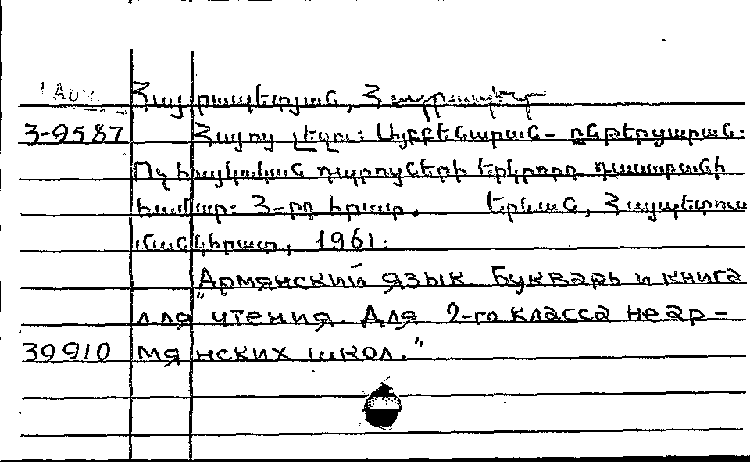 Հայրապետյան, Հայրապետ
3-9587 Հայոց լեզու: Այբբենարան - ընթերցարան:
Ոչ հայկական դպրոցների երկրորդ դասարանի
համար: 3-րդ հրատ. Երևան, Հայպետու
մանկհրատ, 1961.
„Армянский язык. Букварь и книга
для чтения. Для 2-го класса неар-
39910 мянских школ."